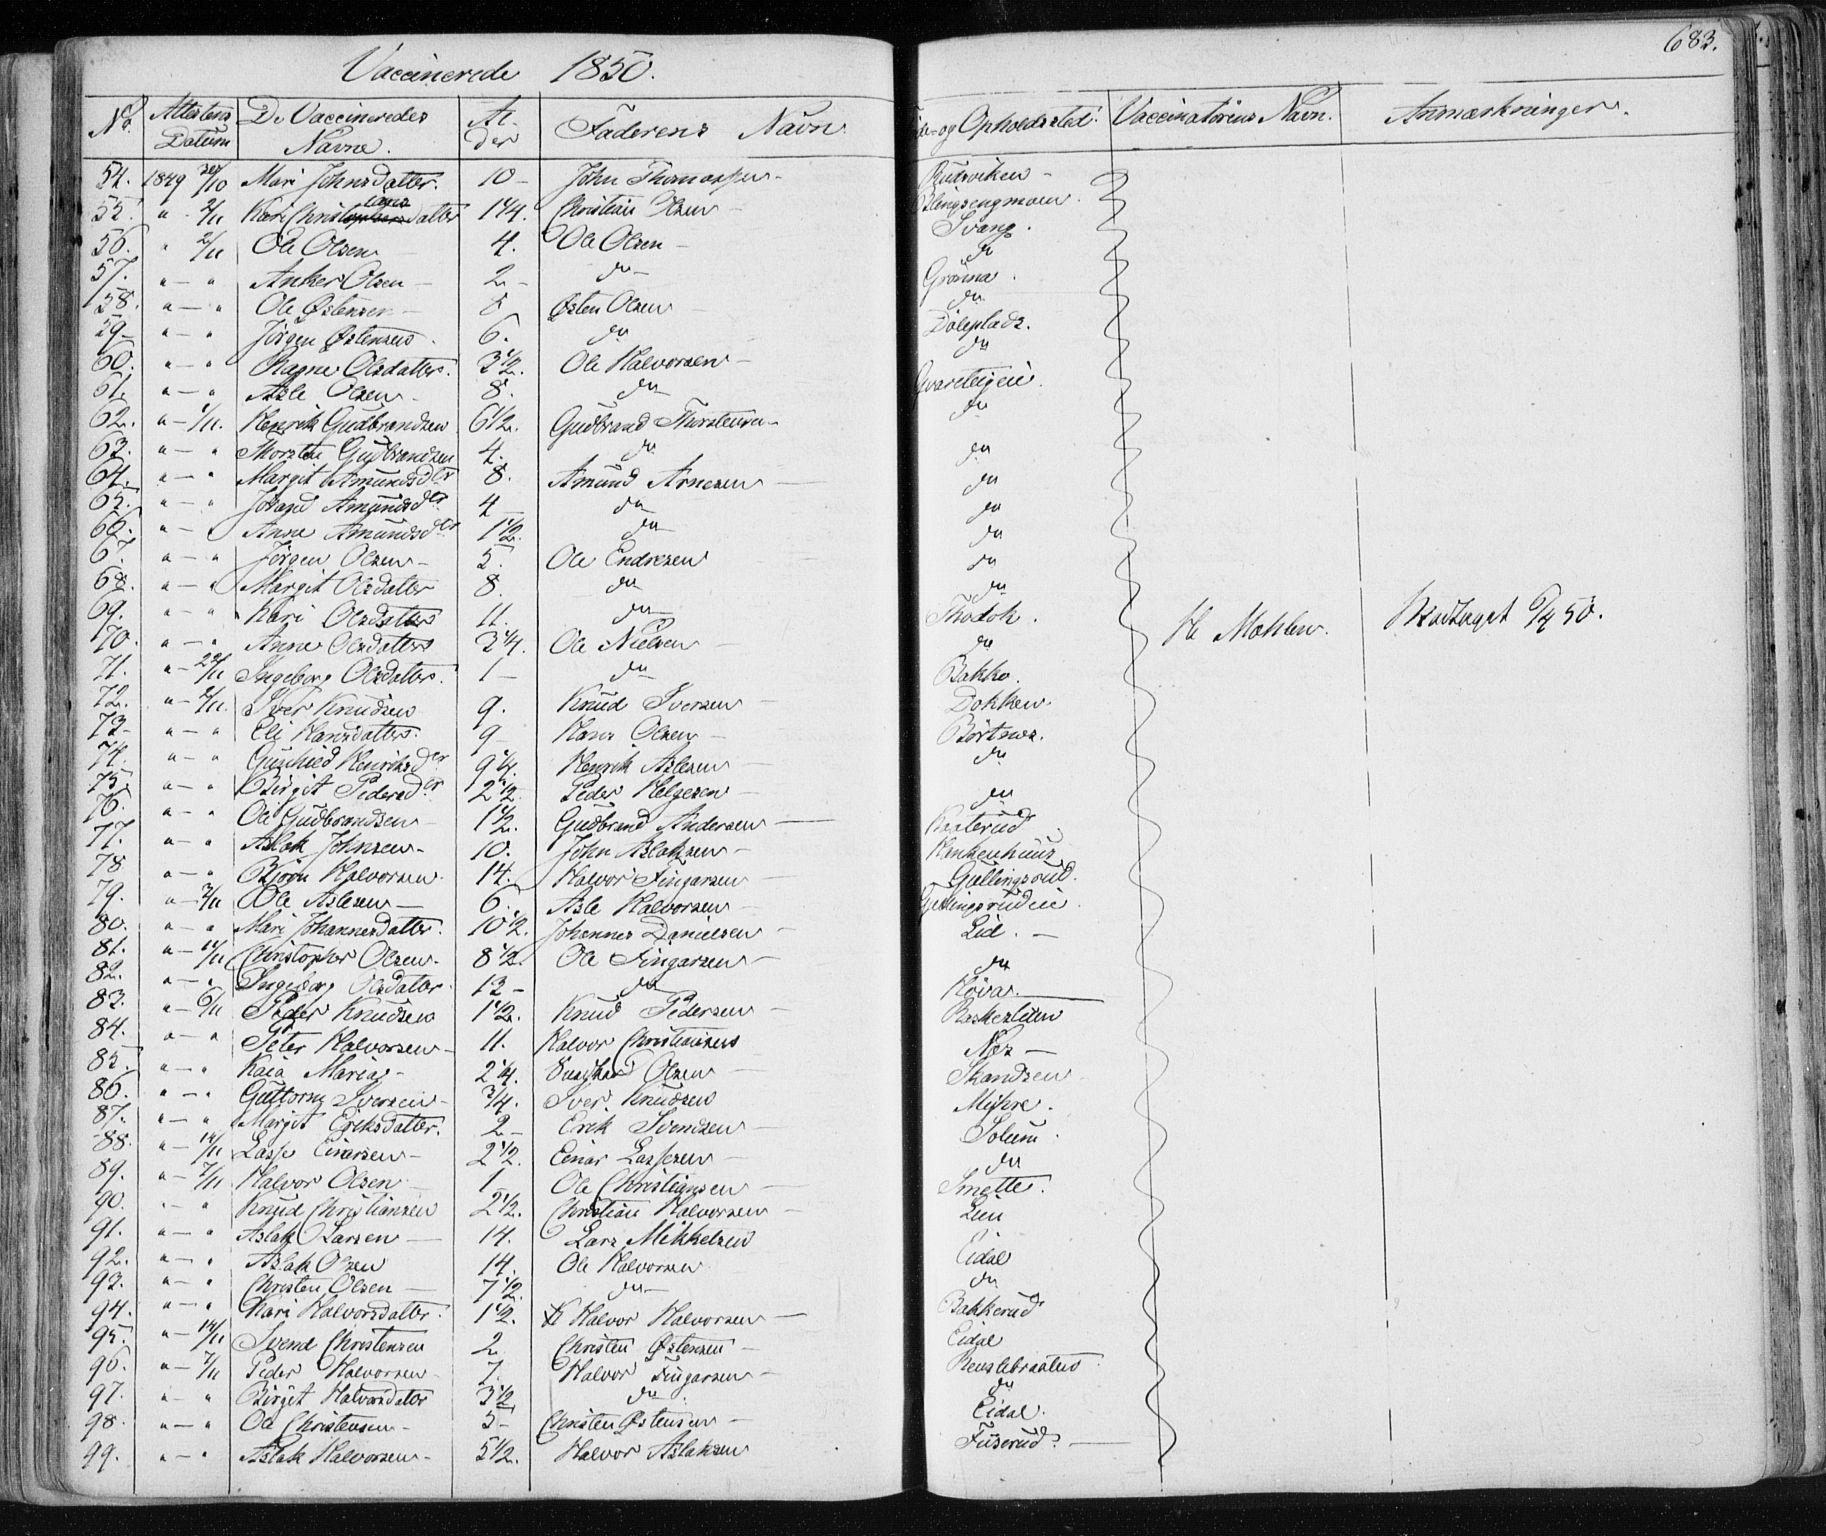 683.
Vaccinerede 1850.
No. Attestens Datum De Vaccineredes Navne. Alder Faderens Navn og Opholdssted. Vaccinateurens Navn. Anmærkninger.
54. 1849 Mari Johnsdatter. 10 - John Thomassen - Rudsviken -
55. " - 2/11 Kari Christiansdatter 1 1/4. Christian Olsen - Blingsengmoen.
56. " 2/11 Ole Olsen 4. Ole Olsen - Svang.
57. " - " Anker Olsen - 2 - do - do
58. " - " Ole Østensen - 8 Østen Olsen Grønna.
59 - " - " Jörgen Østensens. 6. do do
60. " - " Ragne Olsdatter. 3 1/2. Ole Halvorsen - Döleplads.
61. " - " Asle Olsen - 8. do do
62. " - 1/11. Henrik Gudbrandsen 6 1/2. Gudbrand Thorstensen - Qvarsteigen.
63. " - " Thorsten Gudbrandsen 4. do do
64. " - " Margit Amundsdtr 8. Amund Arnesen - do
65. " - " Jorand Amundsdtr 4 do do
66. " - " Anne Amundsdtr 1 1/2. do do
67. " - " Jörgen Olsen - 5. Ole Endresen do
68. " - " Margit Olsdatter 8. do do
69. " - " Kari Olsdatter 11. do do
70. " - " Anne Olsdatter 3 1/4. Ole Nielsen - Thodok. H. Mohlen. Modtaget 6/4 50.
71. " - 22/11 Ingeborg Olsdatter. 1 - do do
72. " - 2/11. Iver Knudsen 9. Knud Iversen - Bakko.
73 - " - " Eli Hansdatter. 9 - Hans Olsen - Dokken.
74. " - " Gunhild Henriksdtr 9 1/4. Henrik Aslesen - Börtnes.
75. " - " Birgit Pedersdtr 2 1/2. Peder Helgesen - do
76. " - " Ole Gudbrandsen - 1 1/2. Gudbrand Andersen - do
77. " - " Aslak Johnsen - 10. John Aslaksen - Kaaterud
78 " - " Björn Halvorsen. 14. Halvor Fingarsen - Hankenhuus
79. " - 3/11 Ole Aslesen - 6. Asle Halvorsen - Gullingsrud.
80. " - " Mari Johannesdatter. 10 1/2. Johannes Danielsen -
81. " - 14/11 Christopher Olsen. 8 1/2. Ole Fingarsen - Lid. -
82. " - " Ingeborg Olsdatter. 13 - do do
83. " - 6/11 Peder Knudsen 1 1/2. Knud Pedersen - Hövas.
84. " - " Peter Halvorsen - 11. Halvor Christiansens
85. " - " Kaia Maria - 2 1/4. Olsen - Næs -
86. " - " Guttorm Iversen - 3/4. Iver Knudsen Skandsen
87. " - " Margit Eriksdatter. 2 - Erik Svendsen - Myhre.
88. " - 14/11 Lasse Einarsen - 2 1/2. Einar Lassesen - Solum.
89. " - 7/11 Halvor Olsen 1 - Ole Christiansen - do
90. " - " Knud Christiansen 2 1/2. Christian Halvorsen - Smette.
91. " - " Aslak Larsen - 14. Lars Mikkelsen Lien
92. " - " Aslak Olsen 14. Ole Halvorsen Eidal
93. " - " Christen Olsen - 7 1/2. do - do
94. " - " Kari Halvorsdatter. 1 1/2. Halvor Halvorsen - Bakkerud
95. " - 14/11 Svend Christensen 2. Christen Østensen - Eidal
96. " - 7/11 Peder Halvorsen - 7. Halvor Fingarsen -
97. " - " Birgit Halvorsdatter 3 1/2 do do
98. " - " Ole Christensen - 5 - Christen Østensen - Eidal.
99. " - " Aslak Halvorsen - 5 1/2. Halvor Aslaksen Fuserud. -